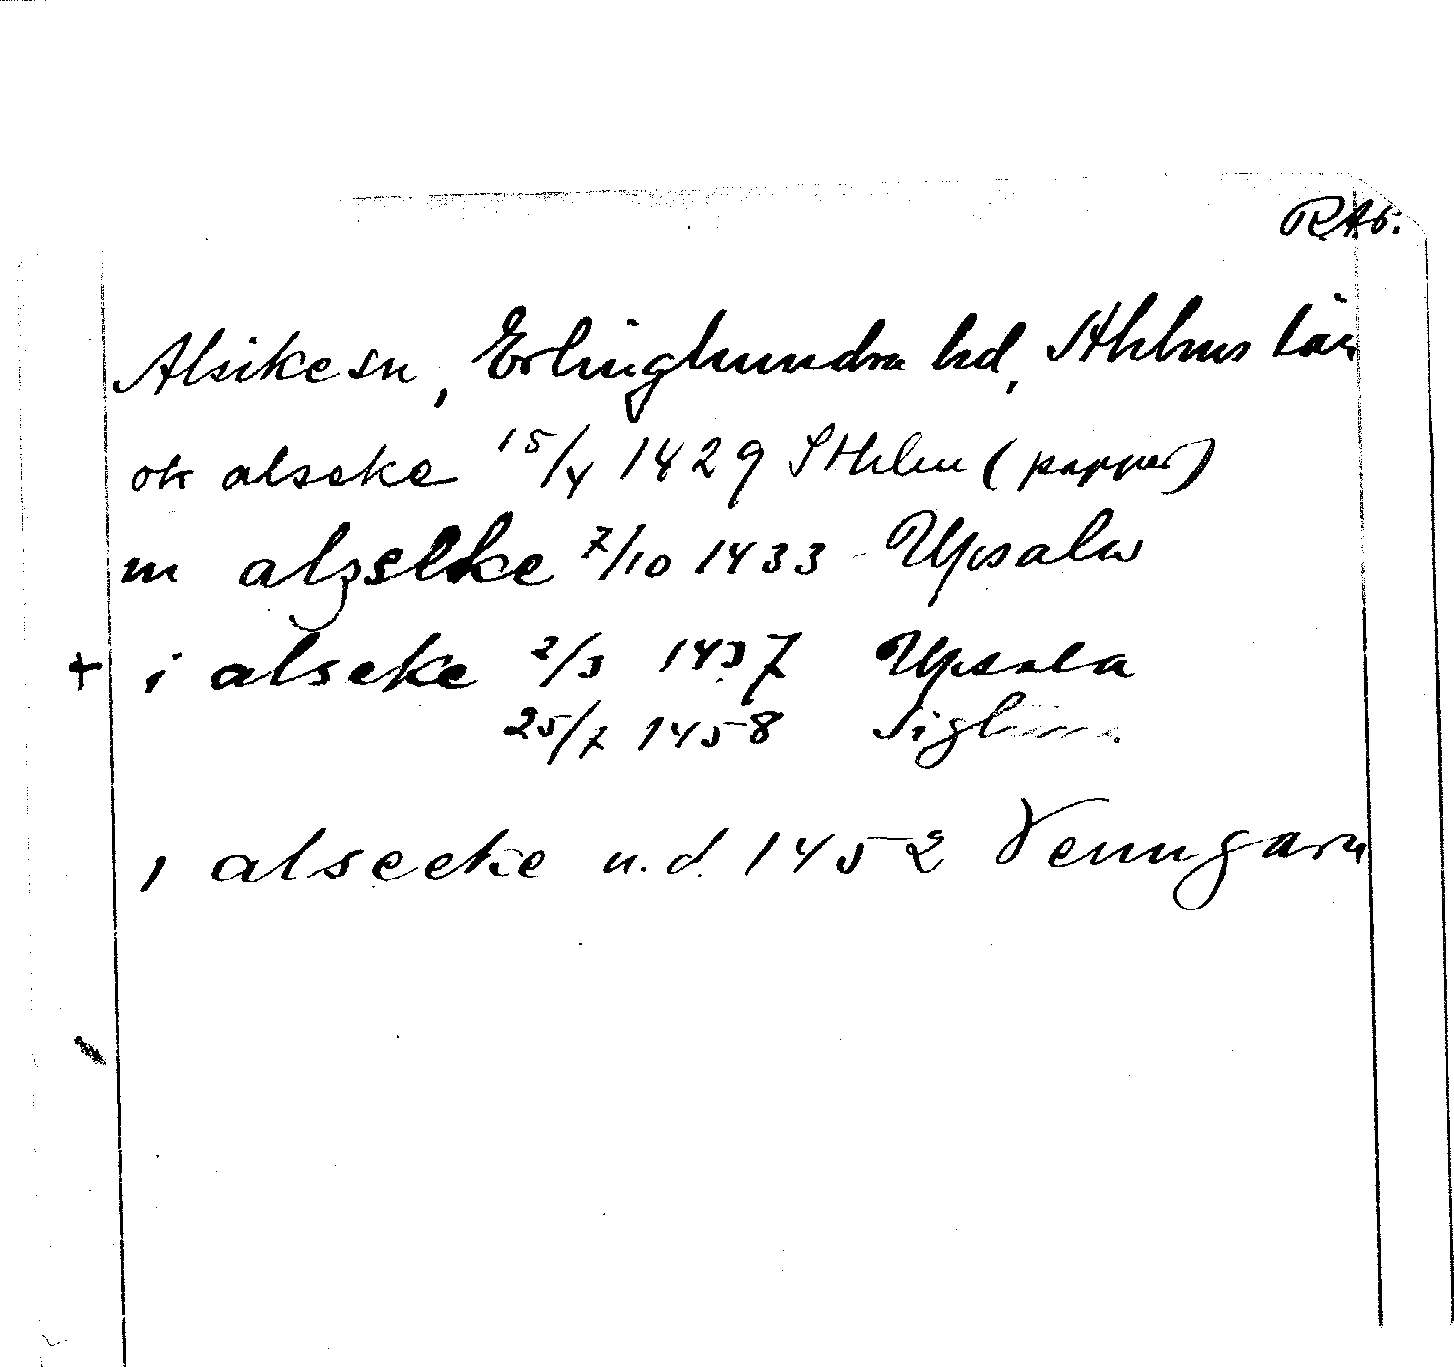 RAb.
Alsike sn, Erlinghundra hd, Sthlms län
ok alseke 15/4 1429 Sthlm (papper)
in alzseke 7/10 1433 Upsala
+ i alseke 2/3 1437 Upsala
25/7 1458 Sigtuna
i alseeke u.d. 1452 Venngarn